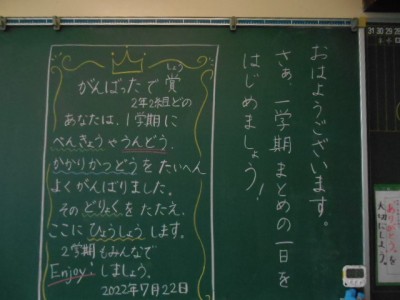 おはようございます。
さぁ、一学期まとめの一日を
はじめましょう!
がんばったで賞
しょう
2年2組どの
あなたは、1学期に
べんきょうやうんどう、
かかりかつどうをたいへん
よくがんばりました。
そのどりょくをたたえ、
ここにひょうしょうします。
2学期もみんなで
Enjoyしましょう。
2022年7月22日
31 30 29 28